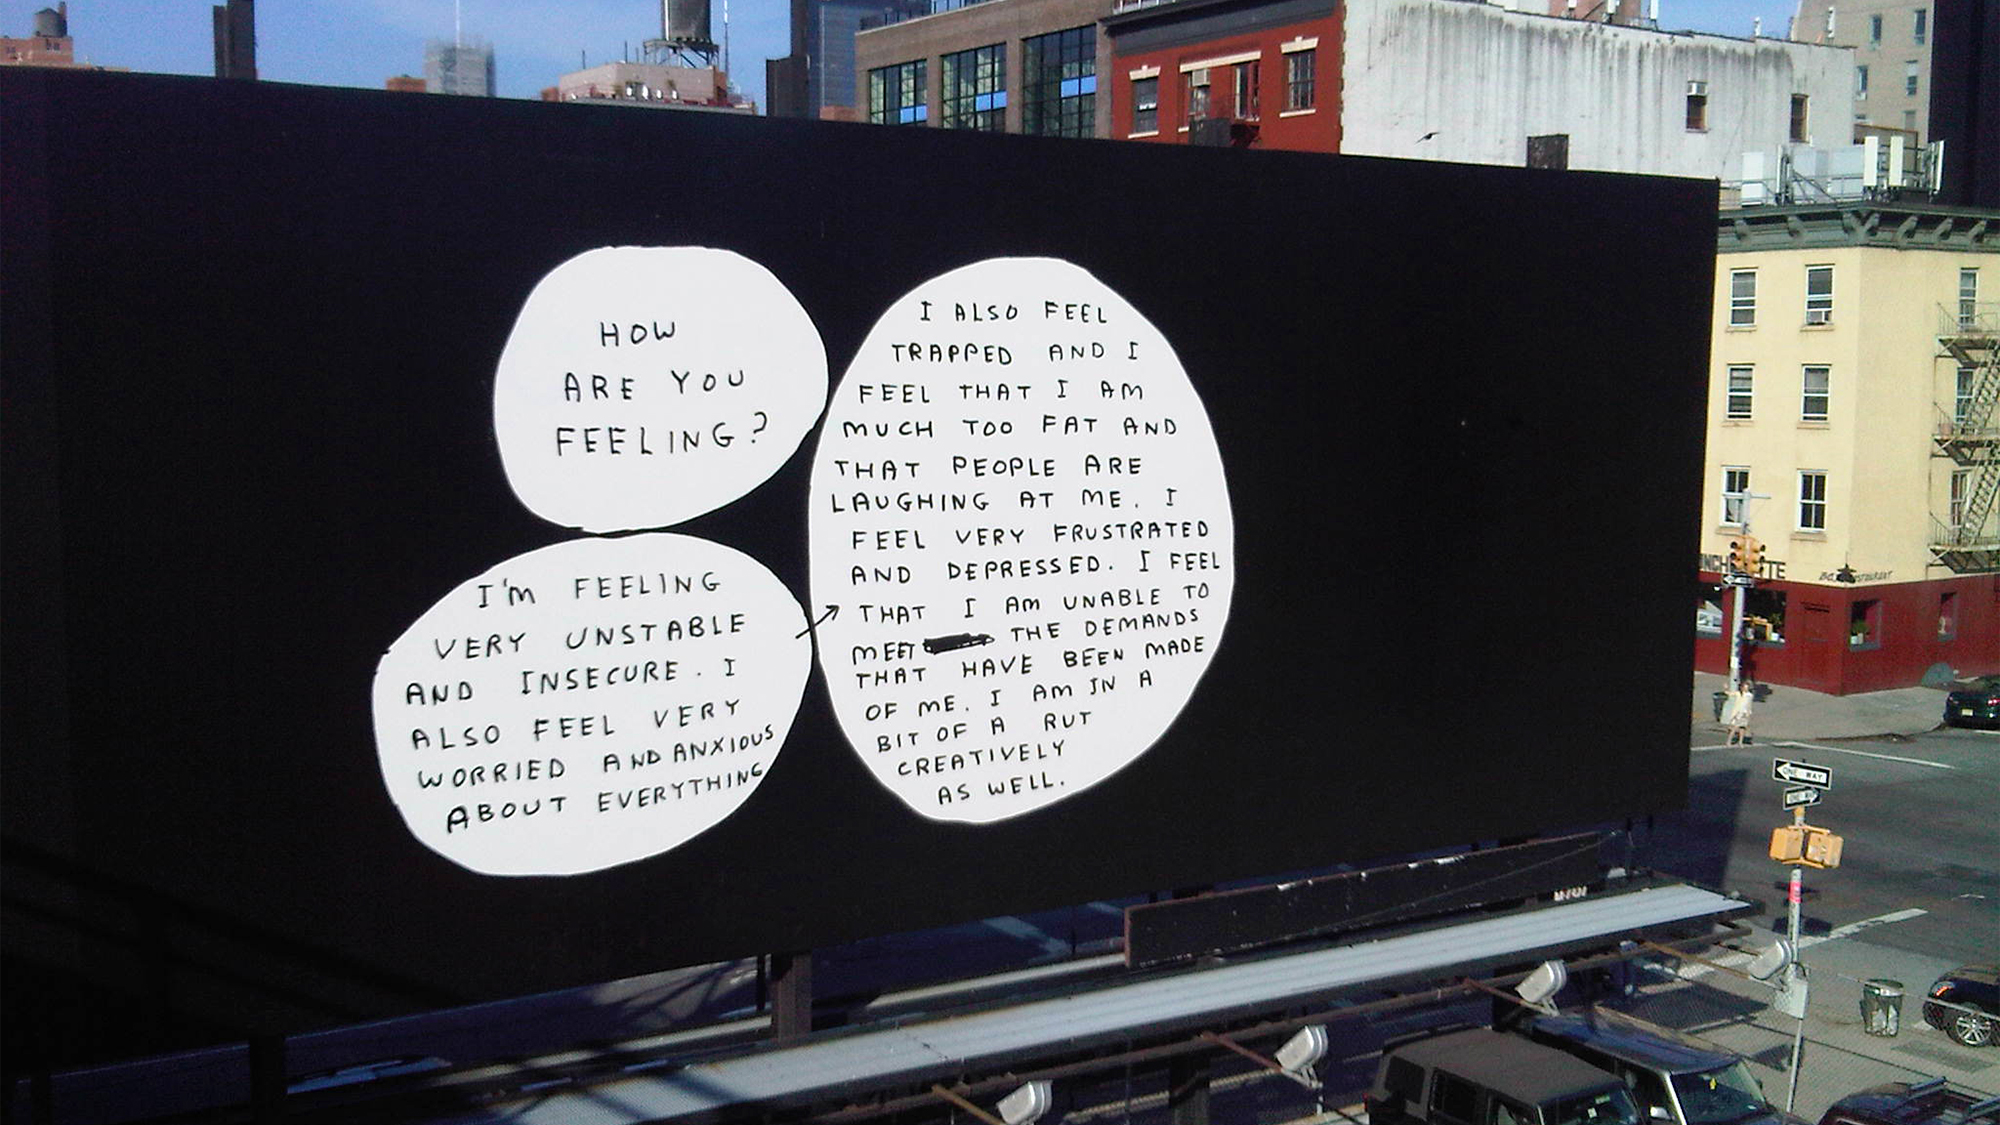 HOW
ARE YOU
FEELING?
I'M FEELING
VERY UNSTABLE
AND INSECURE. I
ALSO FEEL VERY
WORRIED AND ANXIOUS
ABOUT EVERYTHING
I ALSO FEEL
TRAPPED AND I
FEEL THAT I AM
MUCH TOO FAT AND
THAT PEOPLE ARE
LAUGHING AT ME. I
FEEL VERY FRUSTRATED
AND DEPRESSED. I FEEL
THAT I AM UNABLE TO
MEET THE DEMANDS
THAT HAVE BEEN MADE
OF ME. I AM IN A
BIT OF A RUT
CREATIVELY
AS WELL.
ONE WAY
ONE WAY